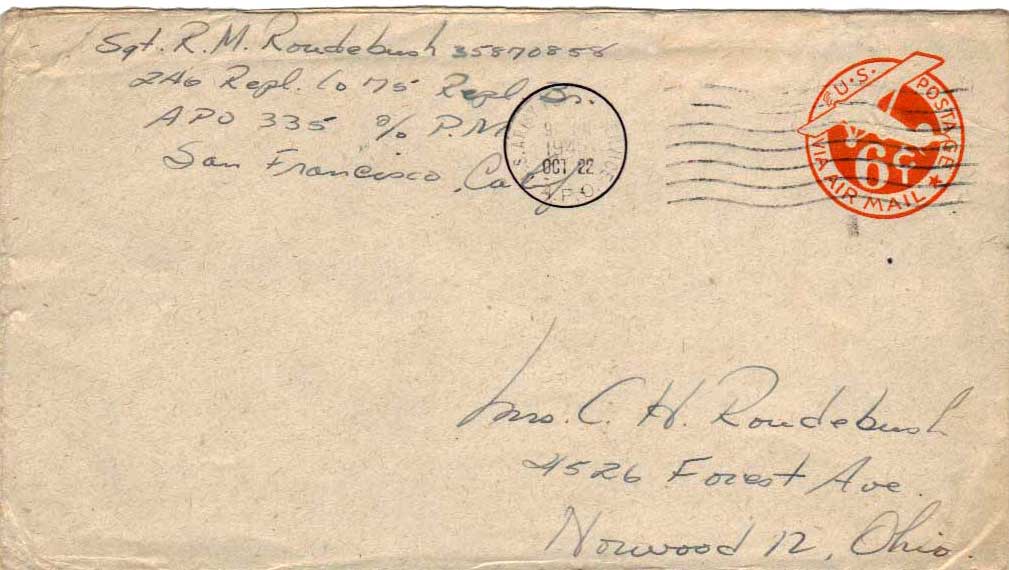 Sgt. R.M. Roudebush 35870858
246 Repl. Co 75 Repl. Bn.
APO 335 c/o P.M.
San Francisco, Calif
U.S. ARMY
1945
OCT 22
A.P.O.
U.S. POSTAGE
6¢
VIA AIR MAIL
Mrs. C. H. Roudebush
4526 Forest Ave.
Norwood 12, Ohio.